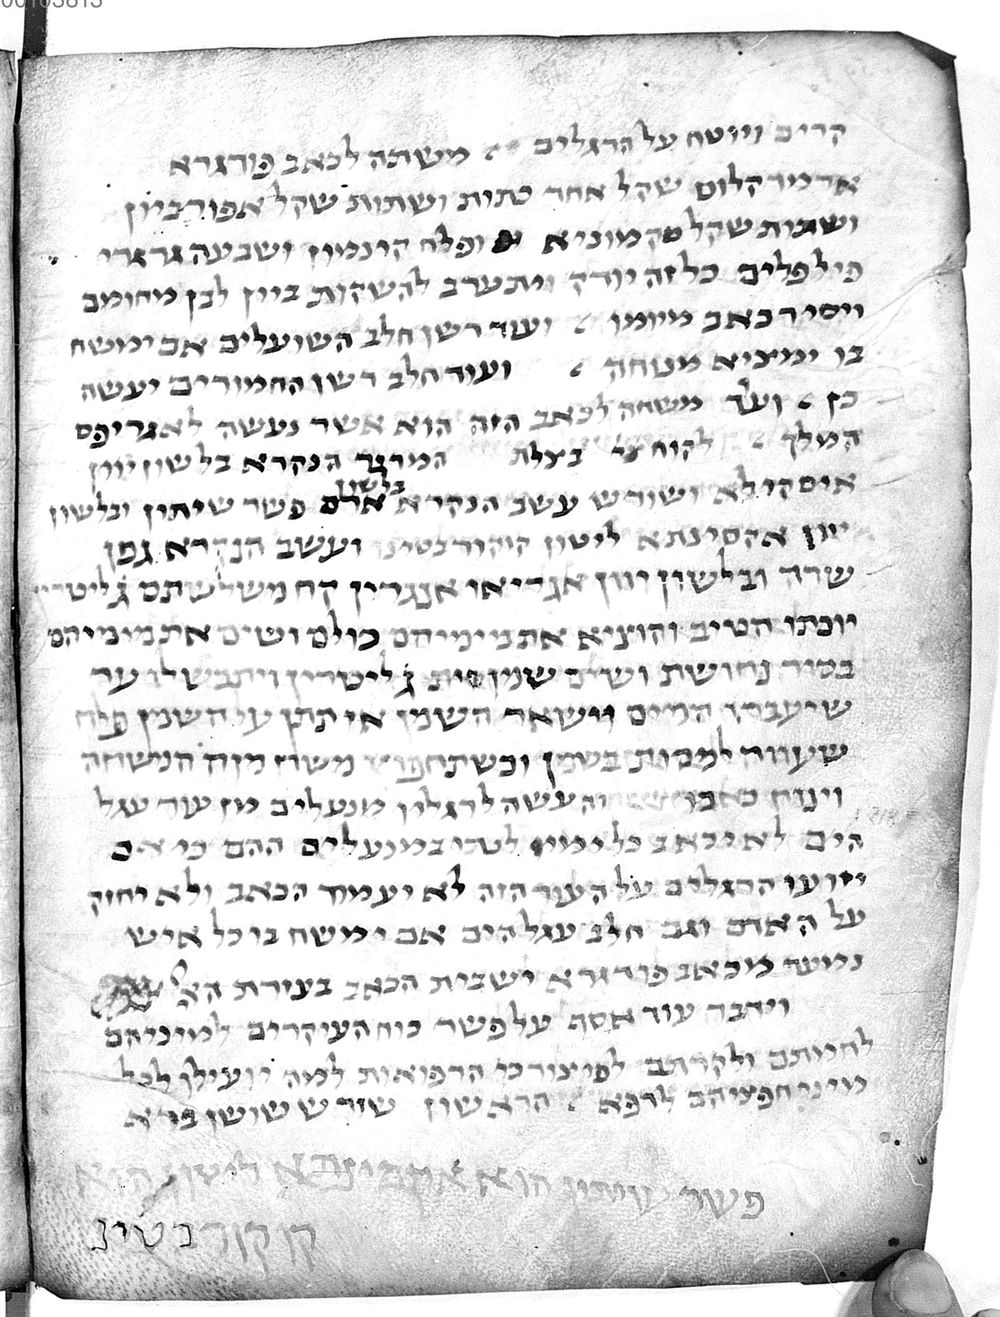 00103813
קרים ויוטח על הרגלים משתה לכאב פורגרא
ארמודקלוס שקל אחד כתית ושתות שקל אפורביון
ושתות שקל סקמוניא ופלח קינמון ושבעה גרגרי
פילפלים כל זה יודק ויתערב להשקות ביין לבן מחומם
ויסיר כאב מיומו ועוד דשן חלב השועלים אם ימשח
בו ימציא מנוחה ועוד חלב דשן החמורים יעשה
כן ועוד משחה לכאב הזה הוא אשר נעשה לאגריפס
המלך לקוח בצלת המדבר הנקרא בלשון יוון
איסקילא ושורש עשב הנקרא בלשון ארם פשר שיתין ובלשון
יוון אקסינתא לשון ועשב הנקרא גפן
שדה ובלשון יוון אגריאו אנגרין קח משלשתם ג ליטרין
וכתו הטיב והוציא את מימיהם כולם ושים את מימיהם
בסיר נחושת ושים שמן זית ג ליטרין ויתבשלו עד
שיעברו המים וישאר השמן אז תתן על השמן פלח
שעווה למסות בשמן וכשתחפוץ משוח מזה המשחה
וינוח כאבו עשה לרגליו מנעלים מן עור עגל
הים לא יכאב כל ימיו לטוב במנעלים ההם כי אם
יזועו הרגלים על העור הזה לא יעמוד הכאב ולא יחזק
על האדם וגם חלב עגל הים אם ימשח בו כל איש
נמעד מכאב פודגרא ישבית הכאב בעזרת האל
וידבר עוד אסף על פשר כוח העיקרים למיניהם
לחמותם ולקרתם לסיצור כל הרפואות למה יועילו לכל
מיני חפציהם לרפא הראשון שורש שושן ברא
פשר שיתין הוא ליטון הוא
קוקורבטינ